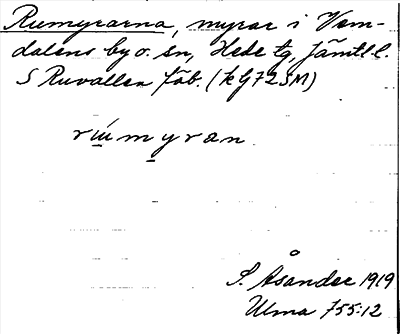 Rumyrarna, myrar i Vem-
dalens by o. sn, Hede tg, Jämtl. l.
S Ruvallen fäb. (kG72SM)
rúmyran
S. Åsander 1919
Ulma 755:12